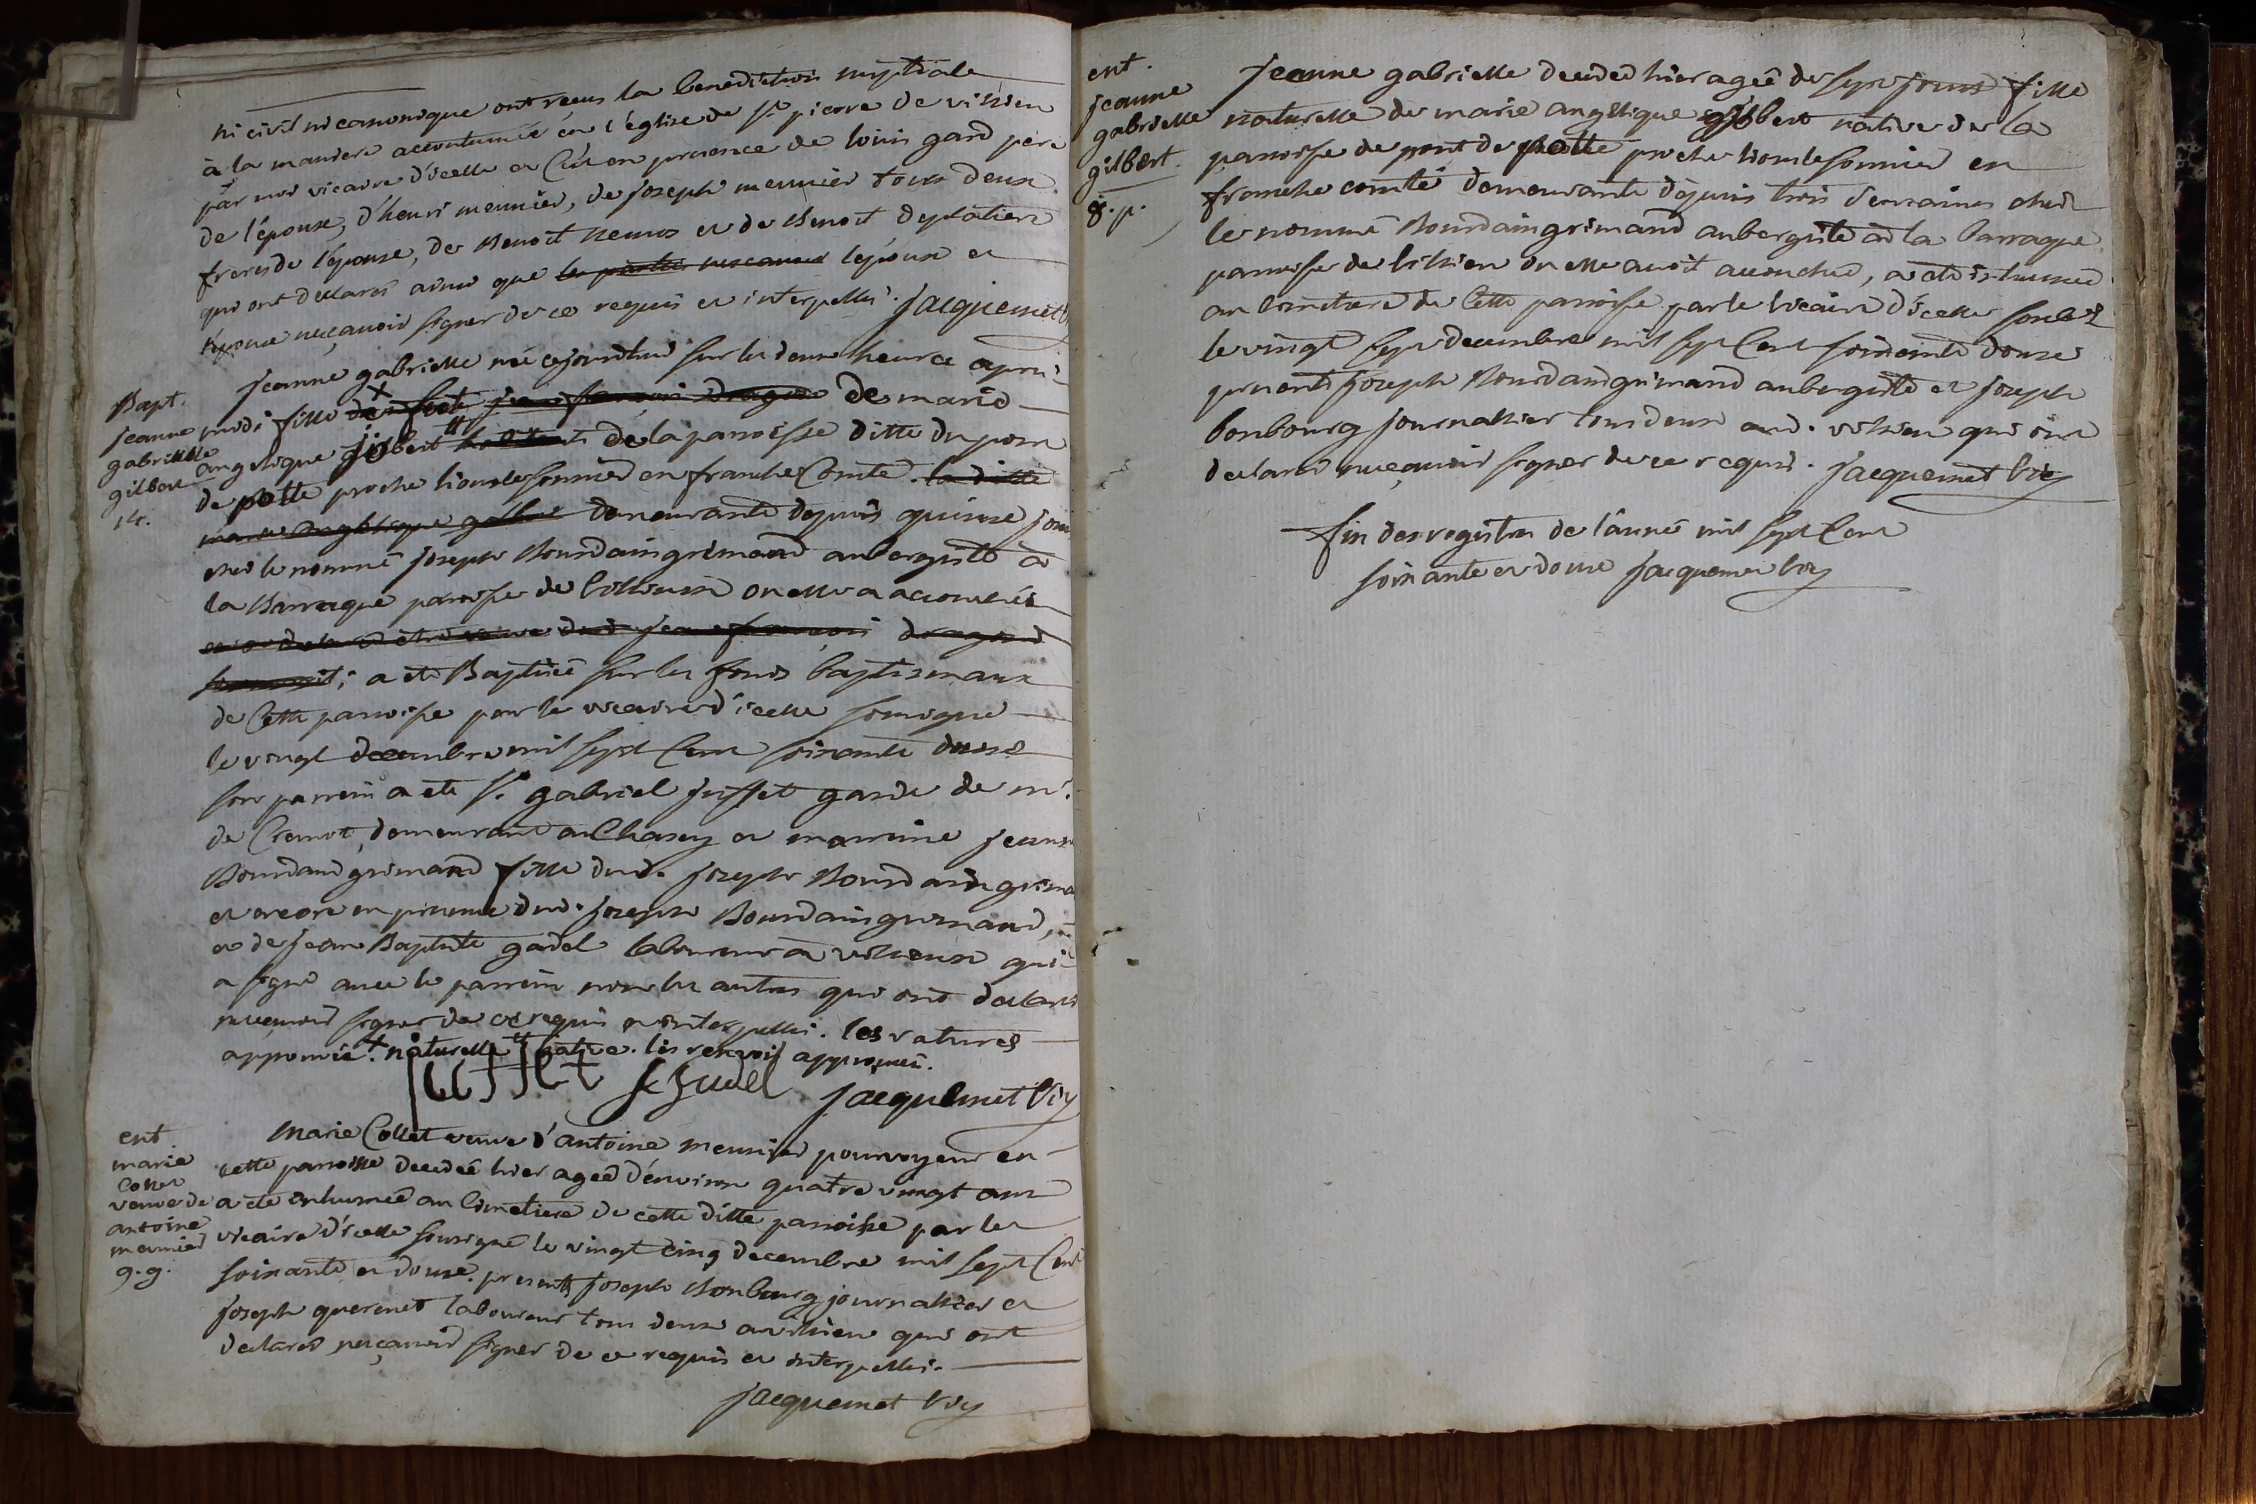 ni civil ni canonique ont reçus la benediction nuptiale
à la maniere accoutumée en l'église de st pierre de vilsieu
par moi vicaire d'icelle et Ce en presence de louis gard pere
de l'épouse, d'henri meunier, de joseph meunier tous deux
freres de l'épouse, de Benoit et de Benoit
qui ont déclarés ainsi que les parties l'époux et
l'épouse ne sçavoir signer de ce requis et interpellés. jacquemet
Bapt.
jeanne
gabrielle
gilbert
14.
jeanne gabrielle née cejourdhui sur les deux heures après
midi fille de jean françois dragon de marie
angelique gilbert de la paroisse ditte du pont
de poette proche lionslesonnier en franche Comté. la ditte
marie angelique gilbert demeurante depuis quinse jours
ches le nommé joseph Bourdaingrimand aubergiste à
la Barraque paroisse de où elle a accouchée
jean françois dragond
a eté Baptisée sur les fonds baptismaux
de Cette paroisse par le vicaire d'icelle sousigné
le vingt decembre mil sept Cent soixante douse
son parrein a eté sr. gabriel juffet garde de mr.
de Cremot, demeurant au Chasey et marrine jeanne
Bourdaingrimand fille dud. joseph Bourdaingrimand
et encore en presence dud. joseph Bourdaingrimand,
et de jean Baptiste gadel laboureur a vilsieux qui
a signé avec le parrein non les autres qui ont déclarés
ne sçavoir signer de ce requis et interpellés. les ratures
approuvée. + naturelle # native. les renvois approuvés.
juffet jacquemet Viç
ent
marie
collet
veuve de
antoine
meunier
g. g.
Marie Collet veuve d'antoine meunier pourvoyeur en
cette paroisse decedée hier agée d'environ quatre vingt ans
a eté inhumée au Cimetiere de cette ditte paroisse par le
vicaire d'icelle sousigné le vingt cinq decembre mil sept Cent
soixante et douse. presents joseph Bonbourg journallier et
joseph querenet laboureur tous deux a vilsieu qui ont
déclarés ne sçavoir signer de ce requis et interpellés.
jacquemet Viç
ent.
jeanne
gabrielle
gilbert.
8. p.
jeanne gabrielle decedée hier agée de sept jours fille
naturelle de marie angelique gilbert native de la
paroisse de pont de poette proche lionslesonnier en
franche comté demeurante depuis trois semaines ches
le nommé Bourdaingrimand aubergiste à la barraque
paroisse de vilsieu où elle avoit accouchée, a eté inhumée
au Cimetiere de Cette paroisse par le vicaire d'icelle sousigné
le vingt sept decembre mil sept Cent soixante douse
presents joseph Bourdaingrimand aubergiste et joseph
bonbourg journallier tous deux aud. vilsieu qui ont
declarés ne sçavoir signer de ce requis. jacquemet Viç
fin des registres de l'année mil sept Cent
soixante et douse jacquemet Viç